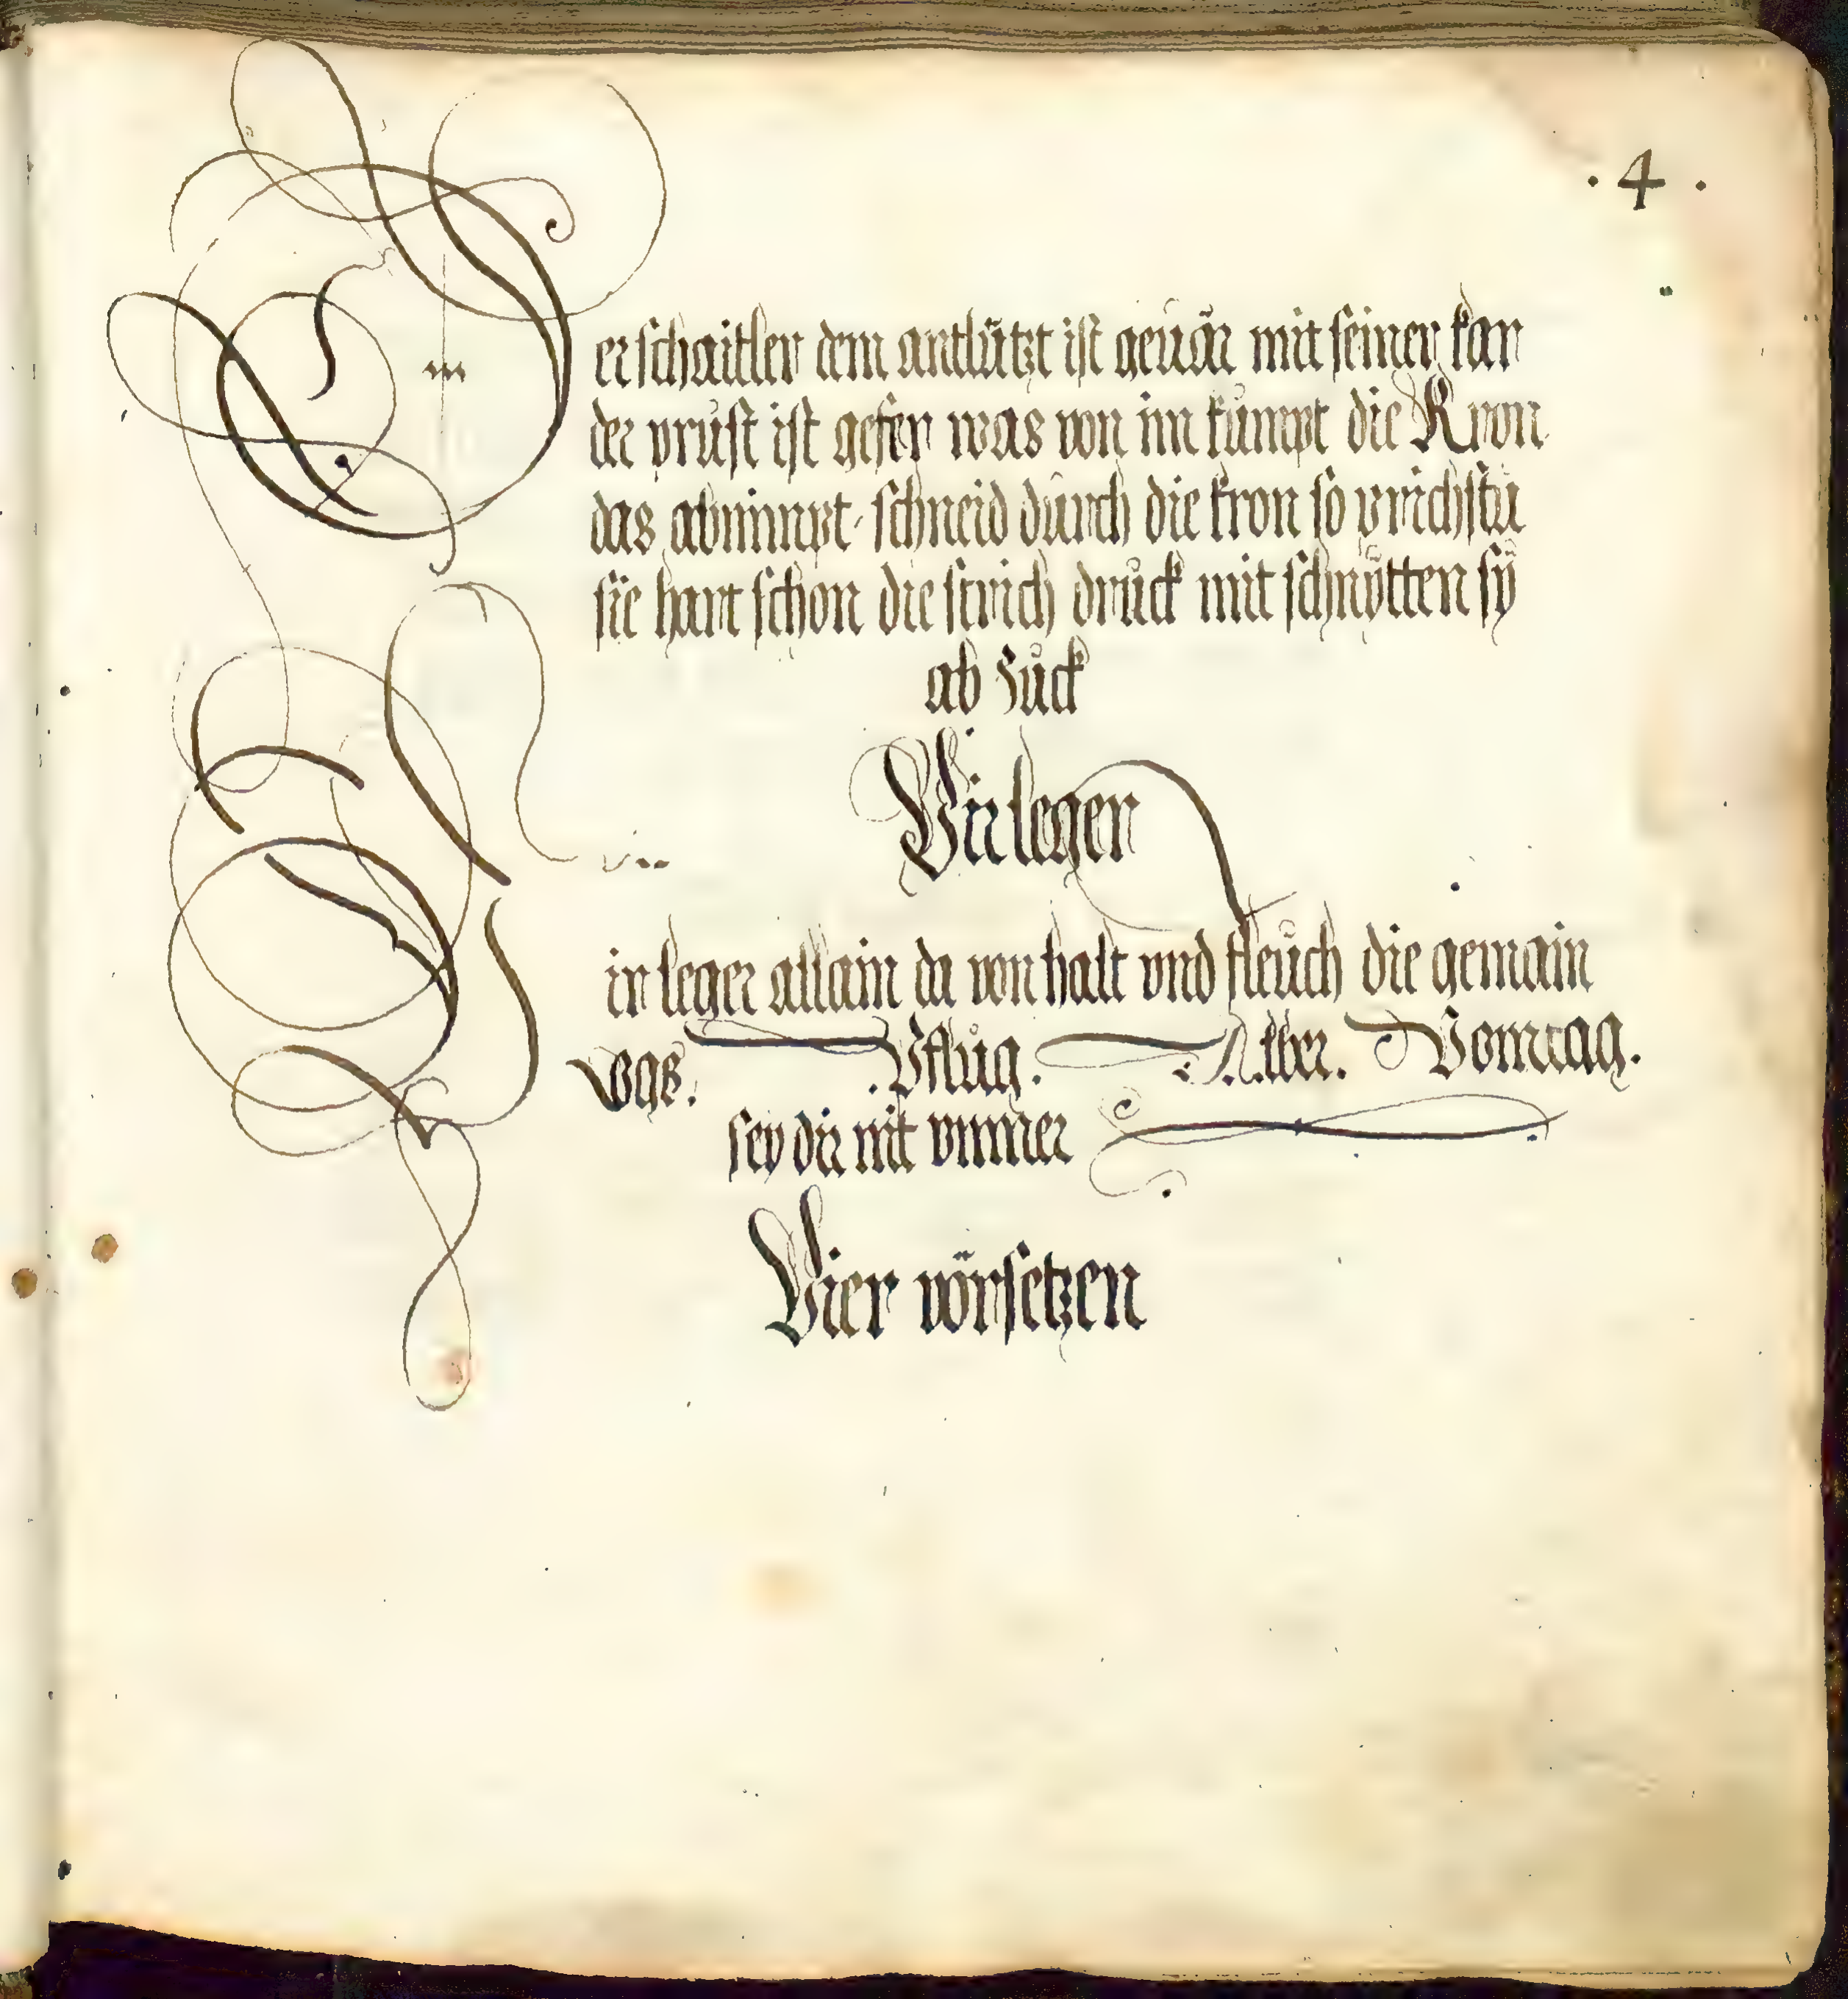 .4.
Der schaitler dem antlützt ist geuär mit seiner kar
der prust ist gefer was von im kumpt die Kron
das abnimpt schneid durch die kron so prichstu
sie hart schon die strich druck mit schnytten sy
ab zuck
Vir leger
Vir leger allain da von halt vnd fleuch die gemain
Ogs. Pflug. Alber. Vomtag.
sey dir nit vnmer
Vier vörsetzen